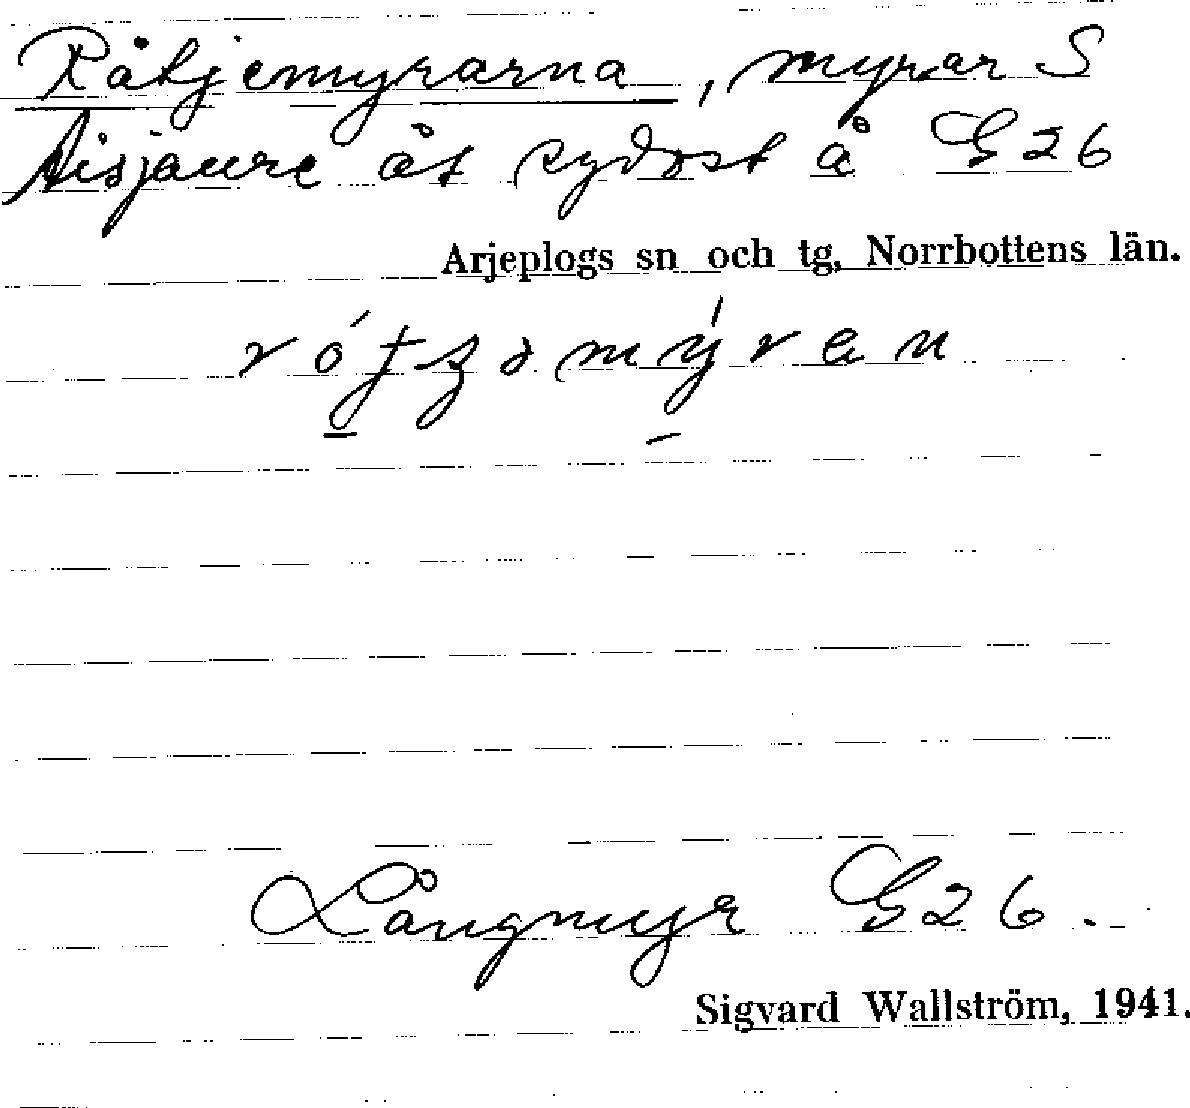 Råtjemyrarna, myrar S
Aisjaure åt sydost å G 26
Arjeplogs sn och tg, Norrbottens län.
Långmyr G 26.
Sigvard Wallström, 1941.